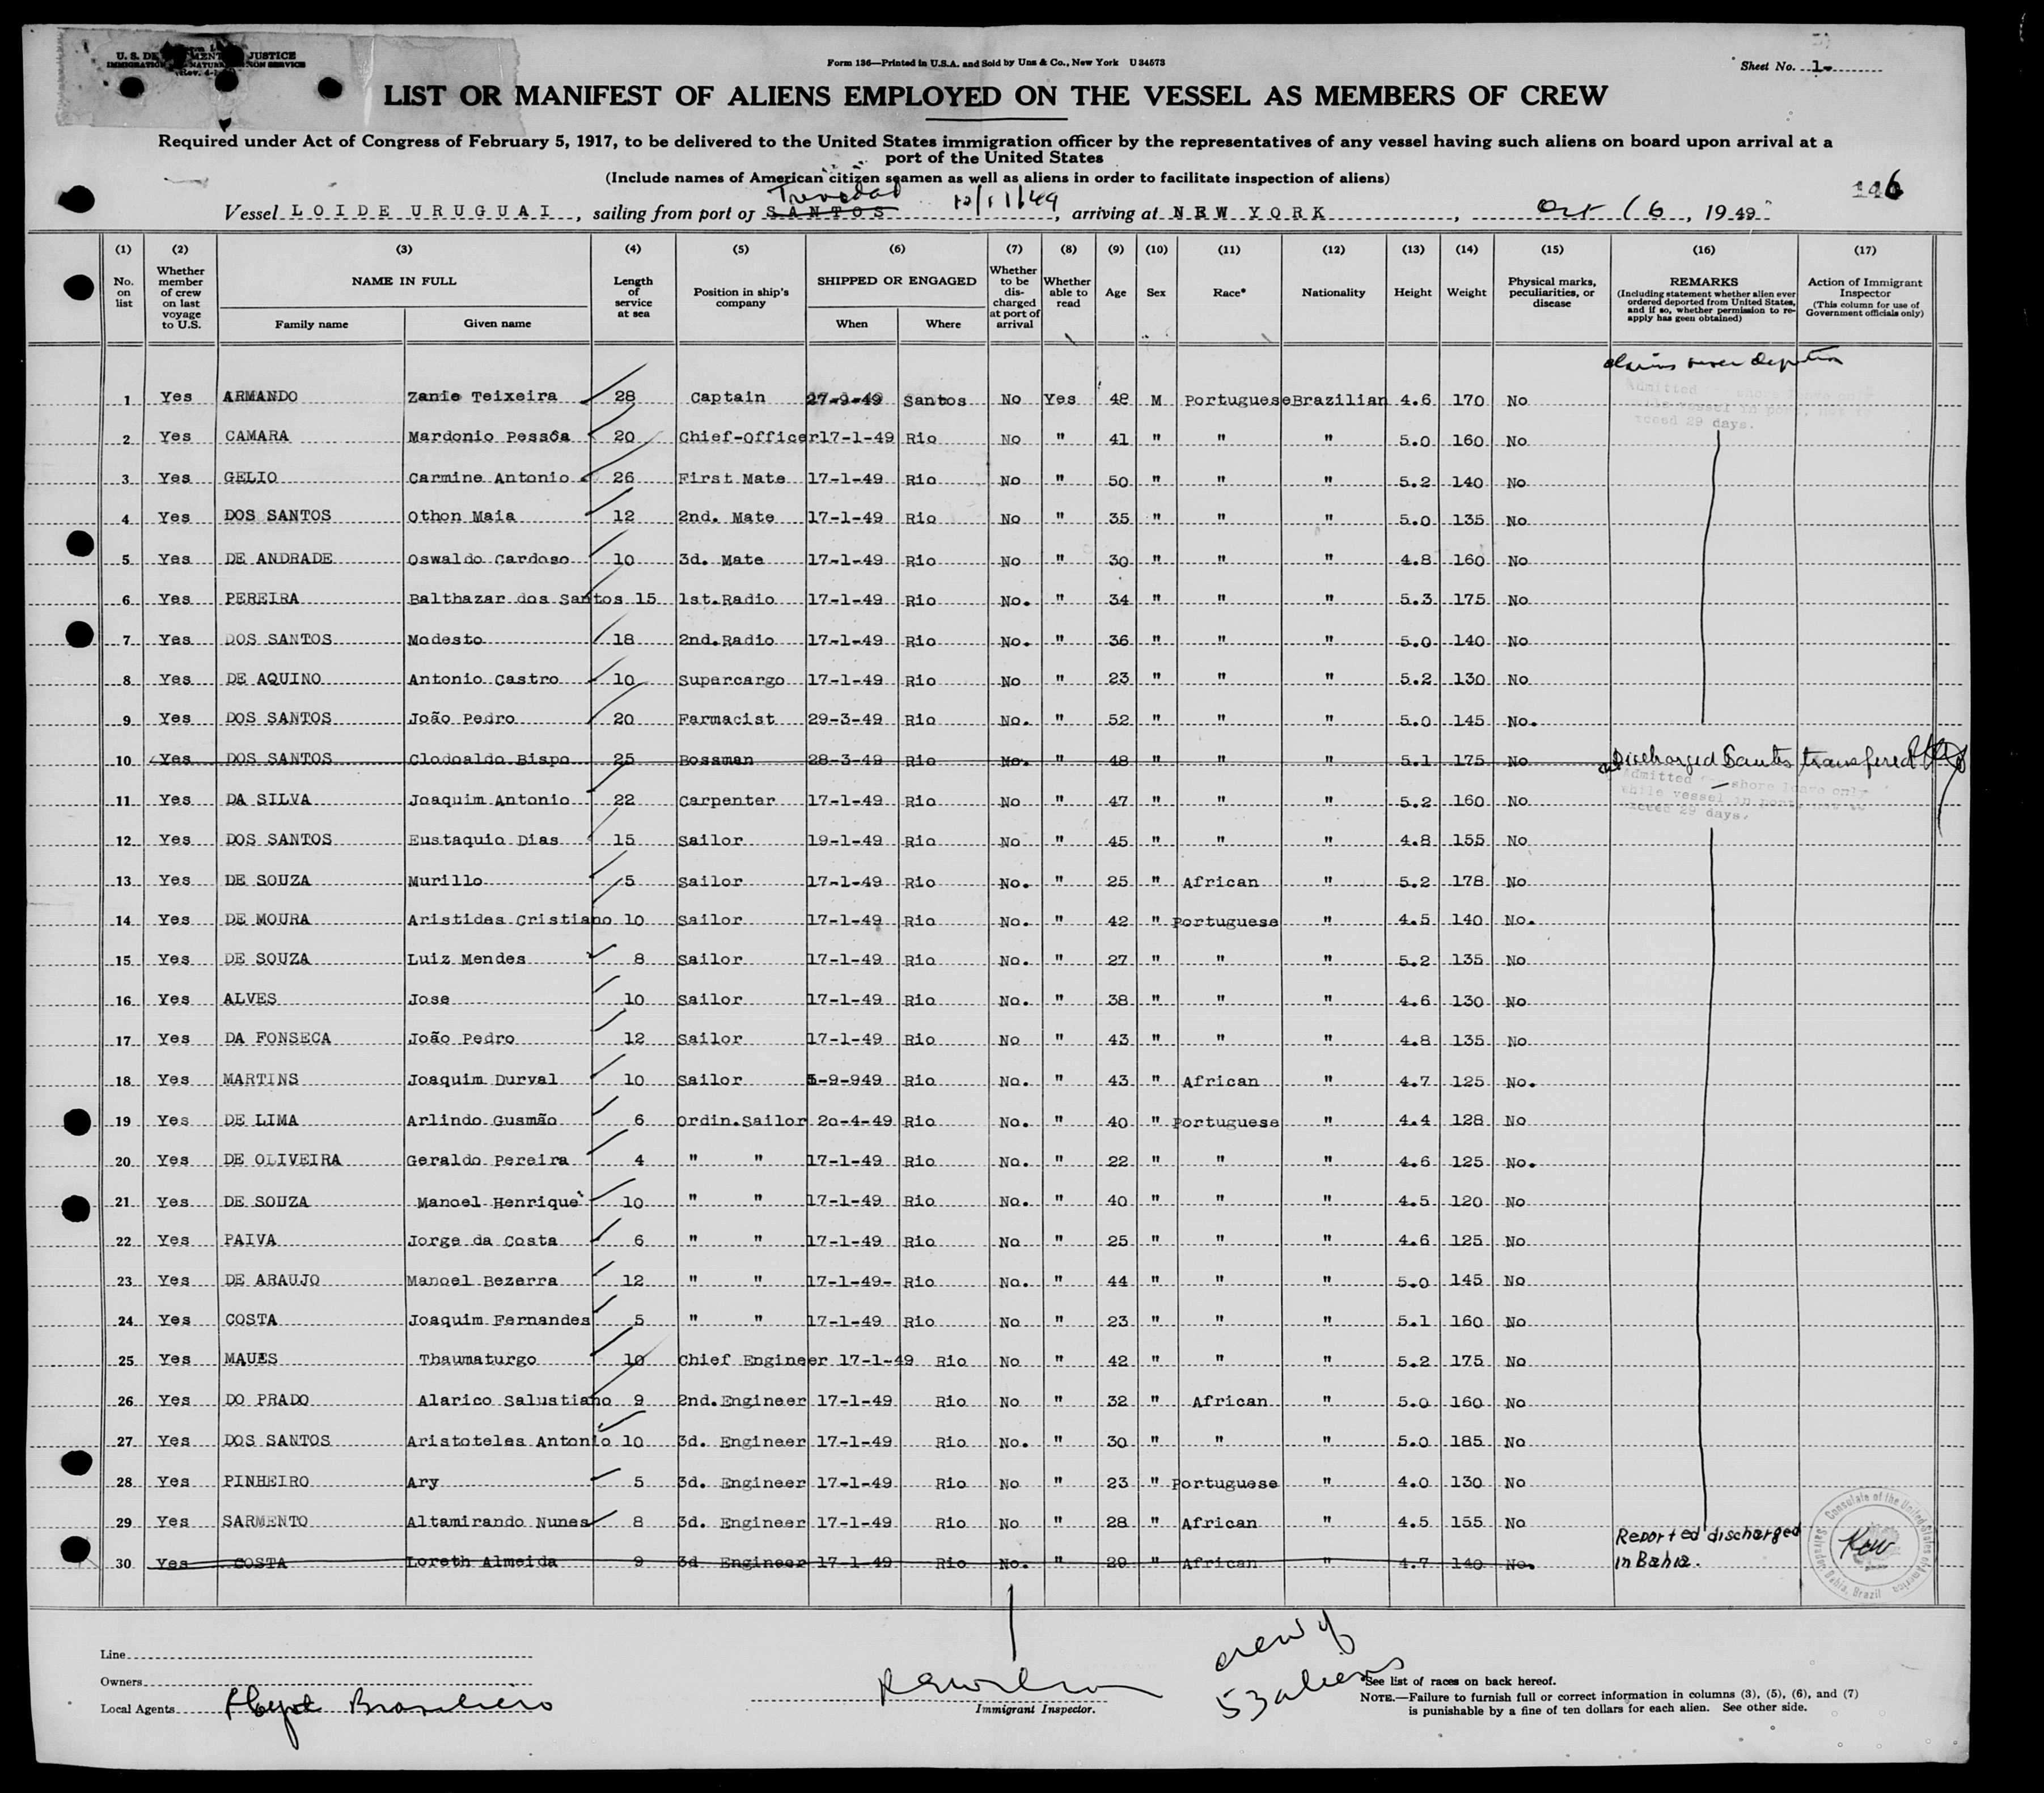 U. S. DE MENT JUSTICE
IMMIGRATION NATUR ON SERVICE
Form 136—Printed in U.S.A. and Sold by Unz & Co., New York U 34573
Sheet No. 1-
LIST OR MANIFEST OF ALIENS EMPLOYED ON THE VESSEL AS MEMBERS OF CREW
Required under Act of Congress of February 5, 1917, to be delivered to the United States immigration officer by the representatives of any vessel having such aliens on board upon arrival at a
port of the United States
(Include names of American citizen seamen as well as aliens in order to facilitate inspection of aliens)
Trinidad
Vessel LOIDE URUGUAI, sailing from port of SANTOS 10/11/49, arriving at NEW YORK, Oct 16, 1949
(1) (2) (3) (4) (5) (6) (7) (8) (9) (10) (11) (12) (13) (14) (15) (16) (17)
No. on list Whether member of crew on last voyage to U.S. NAME IN FULL Family name Given name Length of service at sea Position in ship's company SHIPPED OR ENGAGED When Where Whether to be discharged at port of arrival Whether able to read Age Sex Race* Nationality Height Weight Physical marks, peculiarities, or disease REMARKS (Including statement whether alien ever ordered deported from United States, and if so, whether permission to re-apply has geen obtained) Action of Immigrant Inspector (This column for use of Government officials only)
Admitted shore leave only
while vessel in port, not to
exceed 29 days.
1 Yes ARMANDO Zanie Teixeira 28 Captain 27-9-49 Santos No Yes 48 M Portuguese Brazilian 4.6 170 No
2 Yes CAMARA Mardonio Pessôa 20 Chief-Officer 17-1-49 Rio No " 41 " " " 5.0 160 No
3 Yes GELIO Carmine Antonio 26 First Mate 17-1-49 Rio No " 50 " " " 5.2 140 No
4 Yes DOS SANTOS Othon Maia 12 2nd. Mate 17-1-49 Rio No " 35 " " " 5.0 135 No
5 Yes DE ANDRADE Oswaldo Cardoso 10 3d. Mate 17-1-49 Rio No " 30 " " " 4.8 160 No
6 Yes PEREIRA Balthazar dos Santos 15 1st.Radio 17-1-49 Rio No. " 34 " " " 5.3 175 No
7 Yes DOS SANTOS Modesto 18 2nd.Radio 17-1-49 Rio No. " 36 " " " 5.0 140 No
8 Yes DE AQUINO Antonio Castro 10 Supercargo 17-1-49 Rio No " 23 " " " 5.2 130 No
9 Yes DOS SANTOS João Pedro 20 Farmacist 29-3-49 Rio No. " 52 " " " 5.0 145 No.
10 Yes DOS SANTOS Clodoaldo Bispo 25 Bossman 28-3-49 Rio No. " 48 " " " 5.1 175 No Discharged Santos transfered
Admitted shore leave only
while vessel in port, not to
exceed 29 days.
11 Yes DA SILVA Joaquim Antonio 22 Carpenter 17-1-49 Rio No " 47 " " " 5.2 160 No
12 Yes DOS SANTOS Eustaquio Dias 15 Sailor 19-1-49 Rio No " 45 " " " 4.8 155 No
13 Yes DE SOUZA Murillo 5 Sailor 17-1-49 Rio No. " 25 " African " 5.2 178 No
14 Yes DE MOURA Aristides Cristiano 10 Sailor 17-1-49 Rio No. " 42 " Portuguese " 4.5 140 No.
15 Yes DE SOUZA Luiz Mendes 8 Sailor 17-1-49 Rio No. " 27 " " " 5.2 135 No
16 Yes ALVES Jose 10 Sailor 17-1-49 Rio No. " 38 " " " 4.6 130 No
17 Yes DA FONSECA João Pedro 12 Sailor 17-1-49 Rio No " 43 " " " 4.8 135 No
18 Yes MARTINS Joaquim Durval 10 Sailor 5-9-949 Rio No. " 43 " African " 4.7 125 No.
19 Yes DE LIMA Arlindo Gusmão 6 Ordin.Sailor 20-4-49 Rio No. " 40 " Portuguese " 4.4 128 No
20 Yes DE OLIVEIRA Geraldo Pereira 4 " " 17-1-49 Rio No. " 22 " " " 4.6 125 No.
21 Yes DE SOUZA Manoel Henrique 10 " " 17-1-49 Rio No. " 40 " " " 4.5 120 No
22 Yes PAIVA Jorge da Costa 6 " " 17-1-49 Rio No " 25 " " " 4.6 125 No
23 Yes DE ARAUJO Manoel Bezerra 12 " " 17-1-49- Rio No. " 44 " " " 5.0 145 No
24 Yes COSTA Joaquim Fernandes 5 " " 17-1-49 Rio No " 23 " " " 5.1 160 No
25 Yes MAUES Thaumaturgo 10 Chief Engineer 17-1-49 Rio No " 42 " " " 5.2 175 No
26 Yes DO PRADO Alarico Salustiano 9 2nd.Engineer 17-1-49 Rio No " 32 " African " 5.0 160 No
27 Yes DOS SANTOS Aristoteles Antonio 10 3d. Engineer 17-1-49 Rio No. " 30 " " " 5.0 185 No
28 Yes PINHEIRO Ary 5 3d. Engineer 17-1-49 Rio No " 23 " Portuguese " 4.0 130 No
29 Yes SARMENTO Altamirando Nunes 8 3d. Engineer 17-1-49 Rio No " 28 " African " 4.5 155 No
30 Yes COSTA Loreth Almeida 9 3d Engineer 17-1-49 Rio No. " 29 " African " 4.7 140 No. Reported discharged in Bahia.
Consulate of the United States of America Salvador, Bahia, Brazil
Line
Owners
Local Agents Lloyd Brasileiro
Immigrant Inspector.
crew of
53 aliens
*See list of races on back hereof.
NOTE.—Failure to furnish full or correct information in columns (3), (5), (6), and (7)
is punishable by a fine of ten dollars for each alien. See other side.